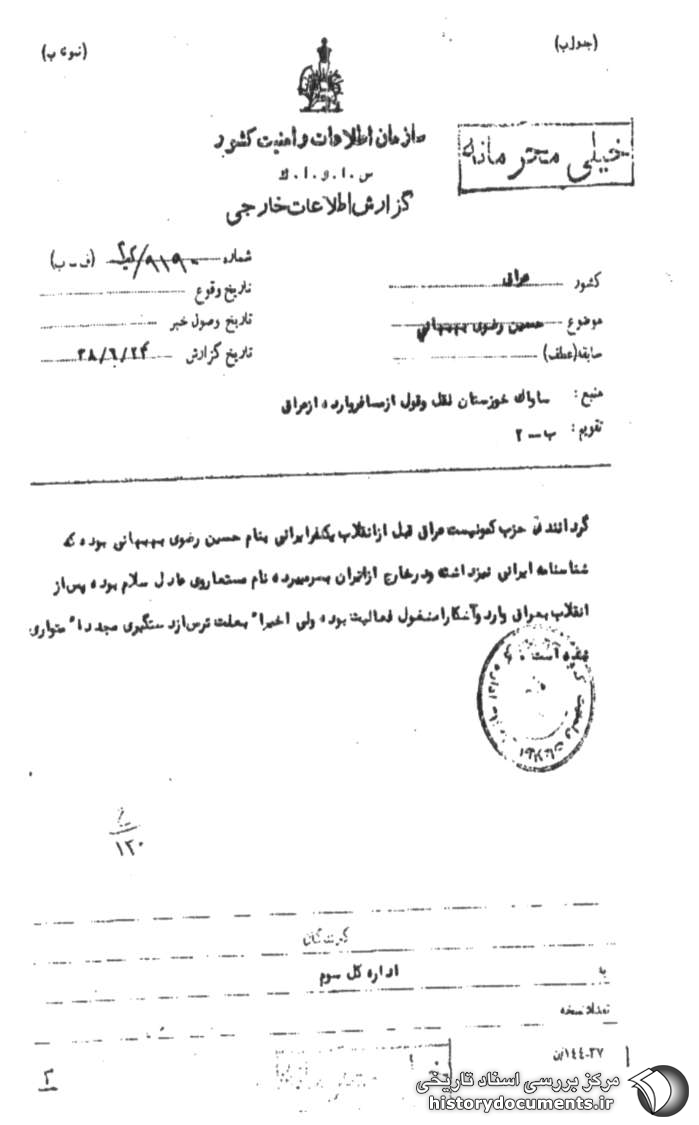 (جدول ب)
(نمونه ب)
سازمان اطلاعات و امنیت کشور
س . ا . و . ا . ک
خیلی محرمانه
گزارش اطلاعات خارجی
شماره ۹۱۹۰/ (ف - ب)
کشور عراق
تاریخ وقوع
موضوع حسین رضوی بهبهانی
تاریخ وصول خبر
سابقه (عطف)
تاریخ گزارش ۳۸/۶/۲۴
منبع : ساواک خوزستان نقل وقول از مسافر وارده از عراق
تقویم : ب - ۲
گردانندهٔ حزب کمونیست عراق قبل از انقلاب یکنفر ایرانی بنام حسین رضوی بهبهانی بوده که
شناسنامه ایرانی نیز داشته ودر خارج از ایران بسر میبرده نام مستعار وی عادل سلام بوده پس از
انقلاب بعراق وارد وآشکارا مشغول فعالیت بوده ولی اخیرا" بعلت ترس از دستگیری مجددا" متواری
شده است .
۱۲۰
گیرندگان
به اداره کل سوم
تعداد نسخه
۱٤٤-۲۷/ن
۲
مرکز بررسی اسناد تاریخی
historydocuments.ir